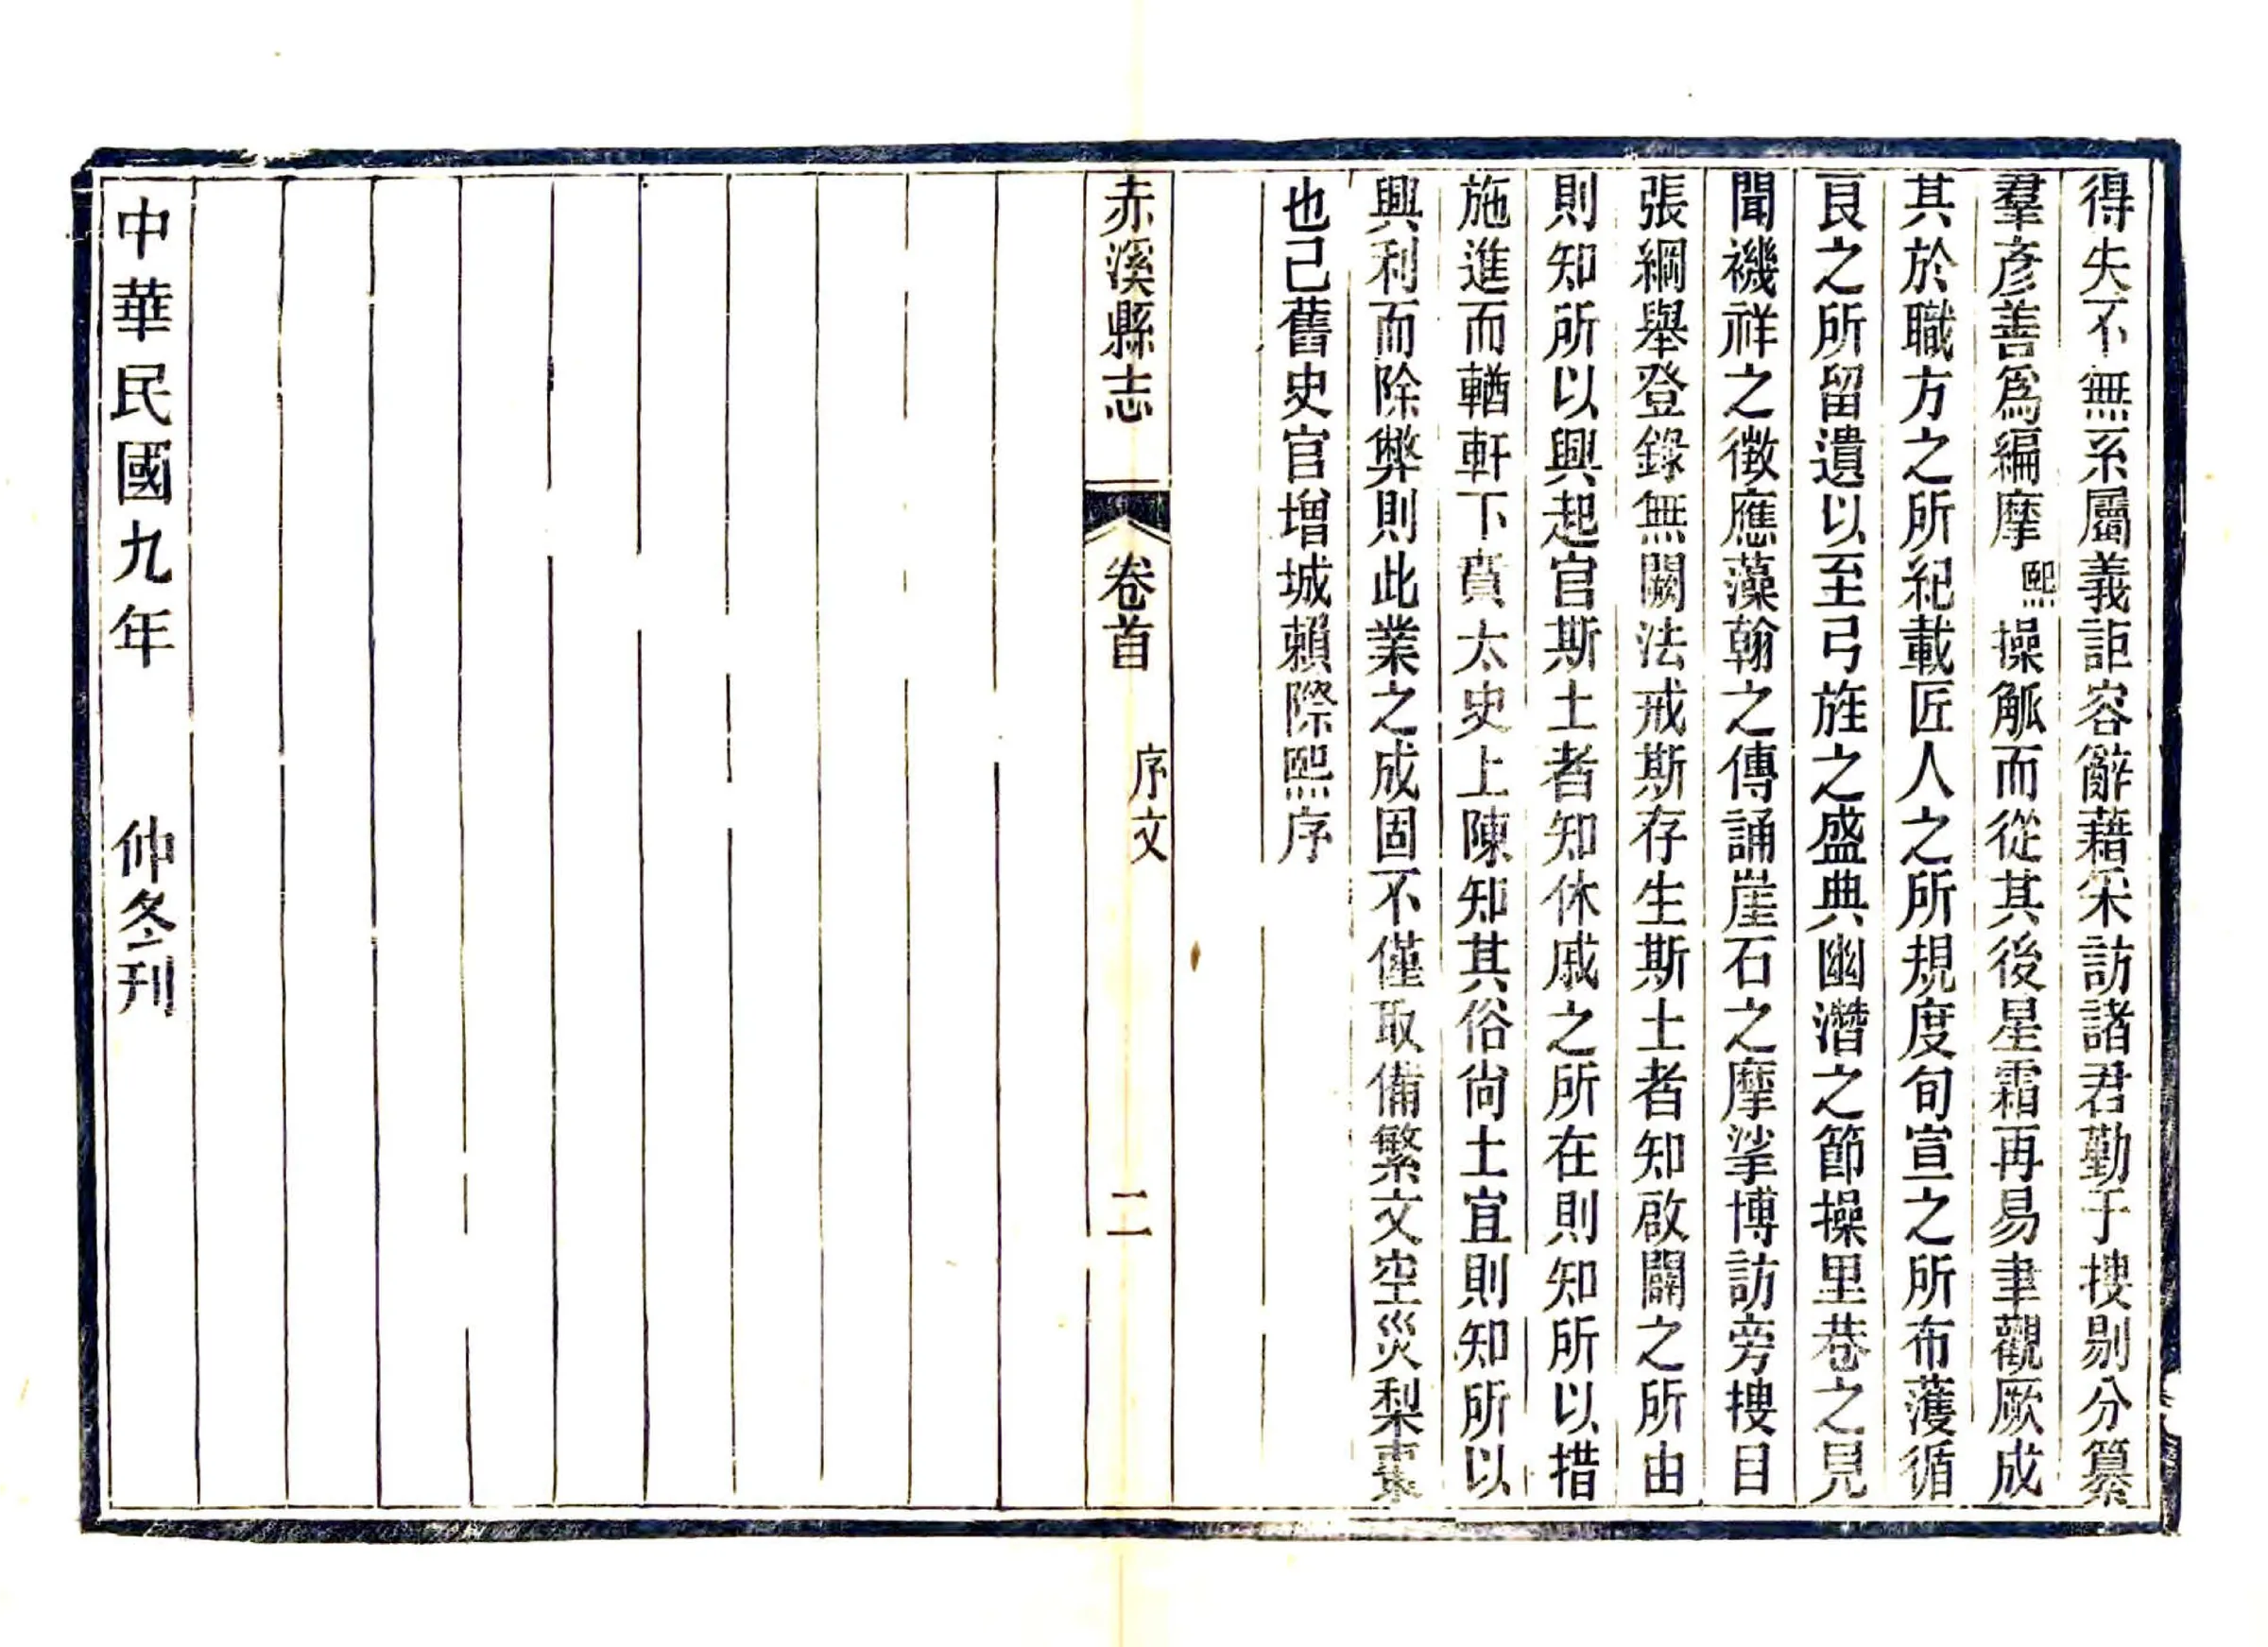 得失不無系屬義詎容辭藉采訪諸君勤于搜剔分纂
羣彥善爲編摩熙操觚而從其後星霜再易聿觀厥成
其於職方之所紀載匠人之所規度旬宣之所布濩循
良之所留遺以至弓旌之盛典幽潛之節操里巷之見
聞禨祥之徵應藻翰之傳誦崖石之摩挲博訪旁搜目
張綱舉登錄無闕法戒斯存生斯土者知啟闢之所由
則知所以興起官斯土者知休戚之所在則知所以措
施進而輶軒下賁太史上陳知其俗尙土宜則知所以
興利而除弊則此業之成固不僅取備繁文空災梨棗
也己舊史官增城賴際熙序
赤溪縣志 卷首 序文 二
中華民國九年 仲冬刊